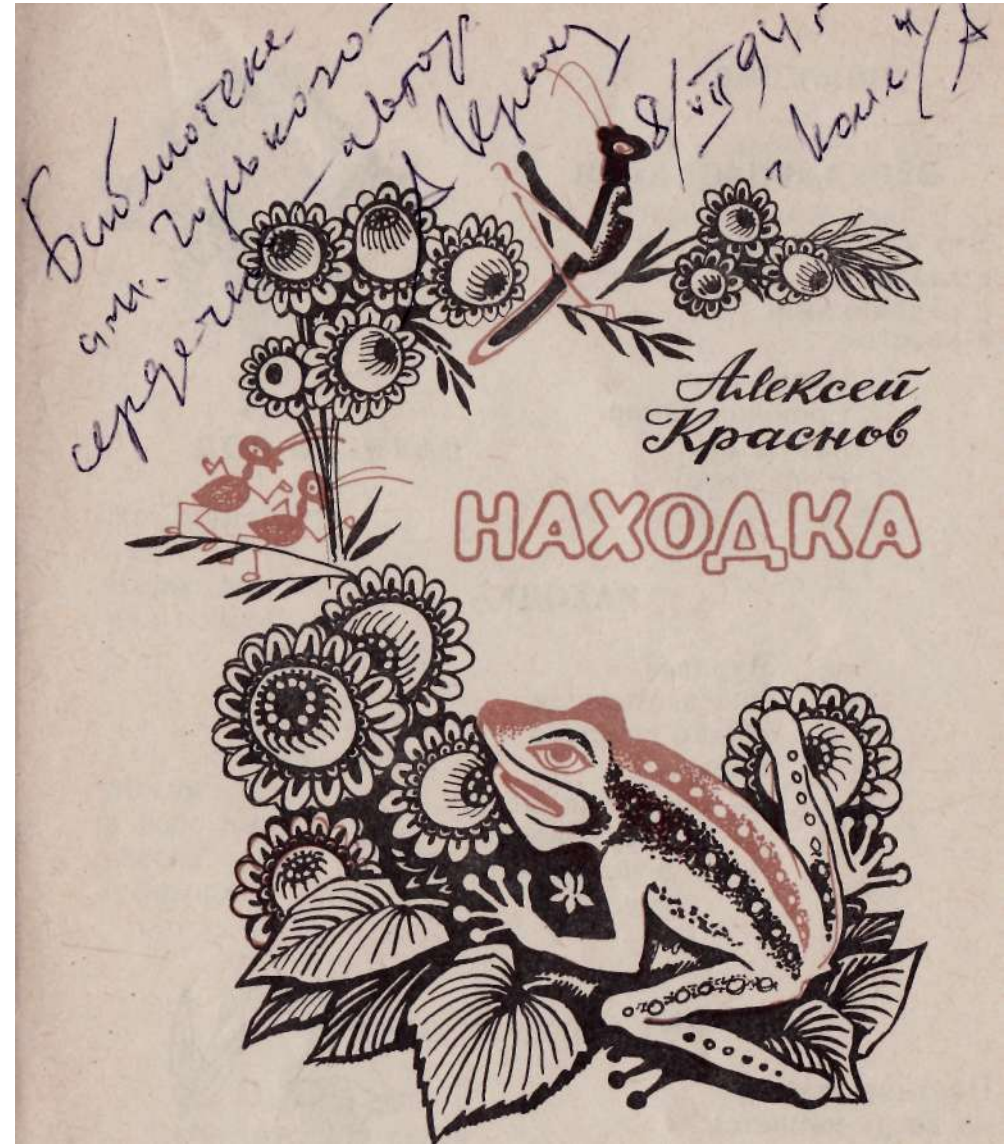 Библиотеке
им. Горького –
сердечно автор
8/VII 94 г.
Алексей
Краснов
НАХОДКА